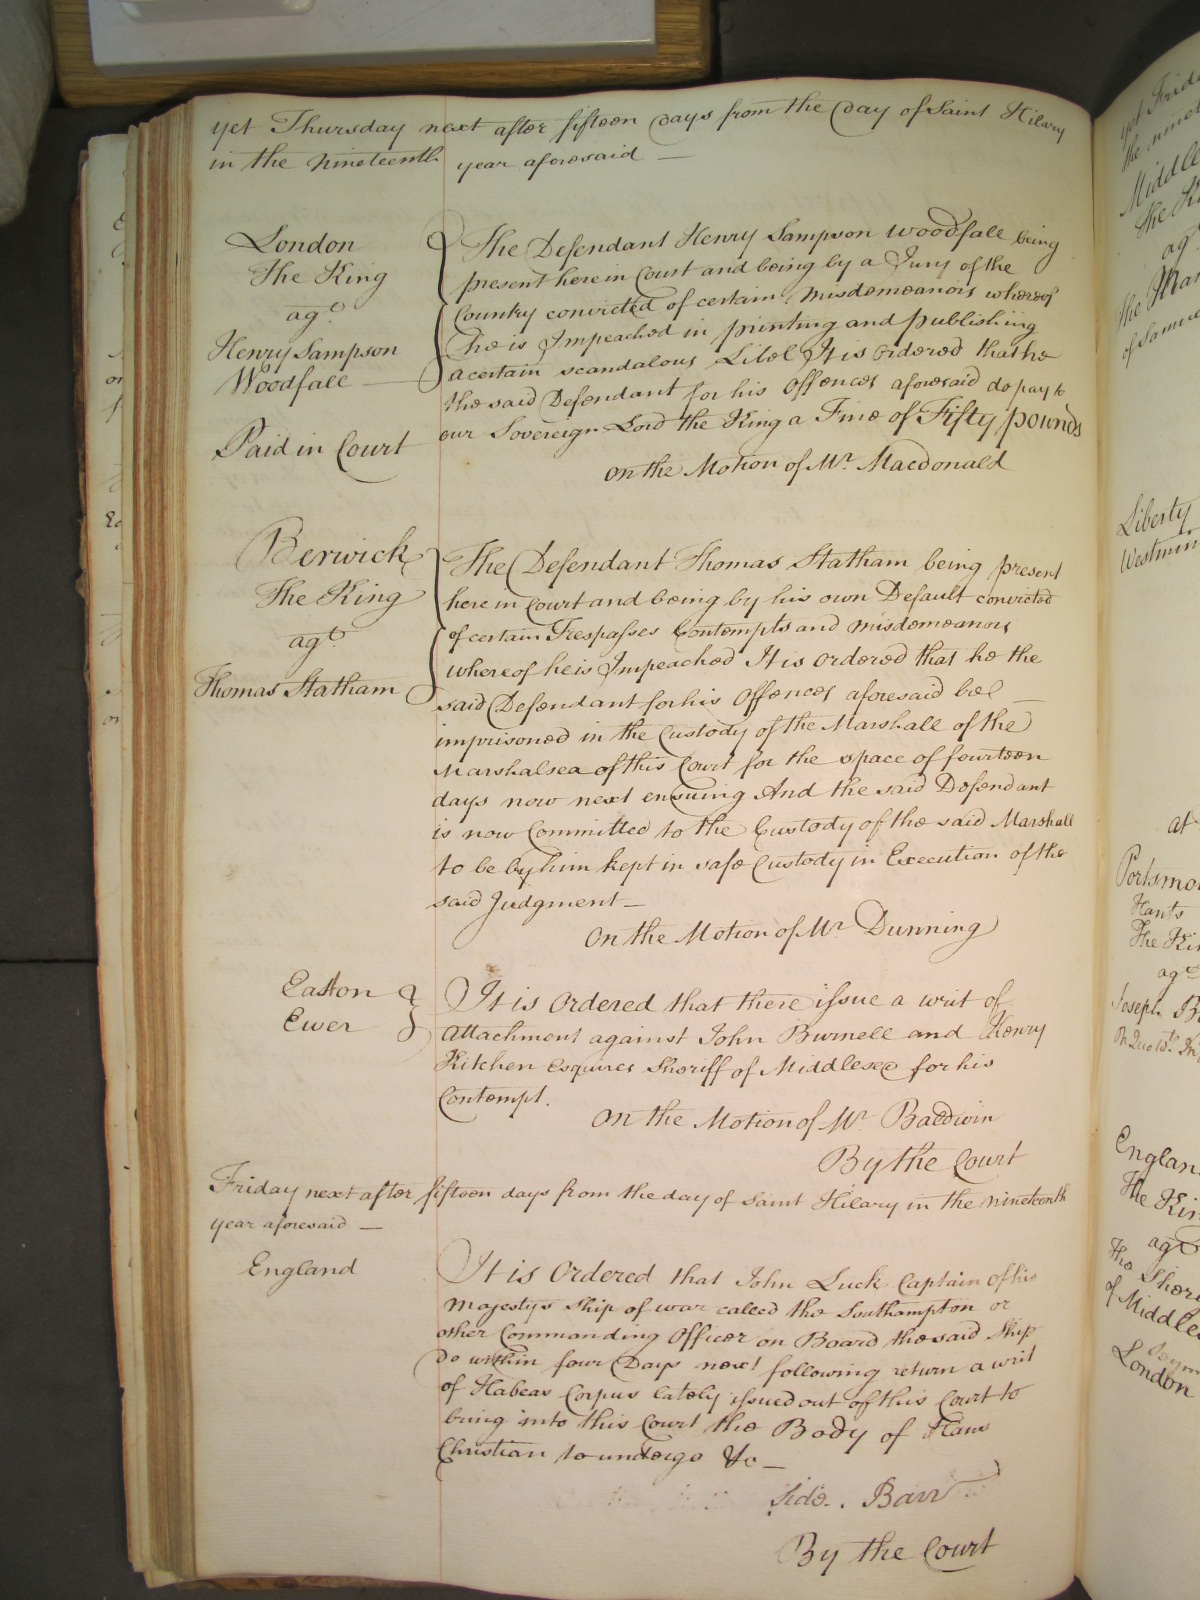 yet Thursday next after fifteen days from the day of Saint Hilary
in the nineteenth year aforesaid —
London
The King
agt
Henry Sampson
Woodfall —
Paid in Court
The Defendant Henry Sampson Woodfall being
present here in Court and being by a Jury of the
Country convicted of certain Misdemeanors whereof
he is Impeached in printing and publishing
a certain scandalous Libel It is Ordered that he
the said Defendant for his Offences aforesaid do pay to
our Sovereign Lord the King a Fine of Fifty pounds
On the Motion of Mr. Macdonald
Berwick
The King
agt
Thomas Statham
The Defendant Thomas Statham being present
here in Court and being by his own Default convicted
of certain Trespasses Contempts and Misdemeanors
whereof he is Impeached It is Ordered that he the
said Defendant for his Offences aforesaid be —
imprisoned in the Custody of the Marshall of the
Marshalsea of this Court for the space of fourteen
days now next ensuing And the said Defendant
is now Committed to the Custody of the said Marshall
to be by him kept in safe Custody in Execution of the
said Judgment —
On the Motion of Mr Dunning
Easton
Ewer
It is Ordered that there issue a writ of
Attachment against John Burnell and Henry
Kitchen Esquires Sheriff of Middlesex for his
Contempt.
On the Motion of Mr. Baldwin
By the Court
Friday next after fifteen days from the day of Saint Hilary in the nineteenth
year aforesaid —
England
It is Ordered that John Luck Captain of his
Majestys Ship of war called the Southampton or
other Commanding Officer on Board the said Ship
do within four Days next following return a writ
of Habeas Corpus lately issued out of this Court to
bring into this Court the Body of Hans
Christian to undergo &c —
Side. Barr
By the Court
Liberty
Westmin
at
Portsmo
Hants
The Ki
agt
Joseph B
England
The Kin
agt
The Sheri
of Middle
London